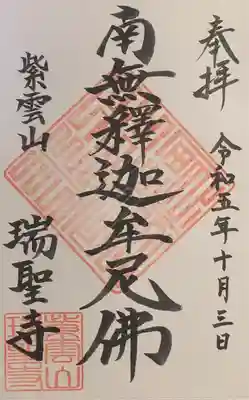 奉拝
令和五年十月三日
南無釋迦牟尼佛
紫雲山
瑞聖寺
紫雲山
瑞聖寺